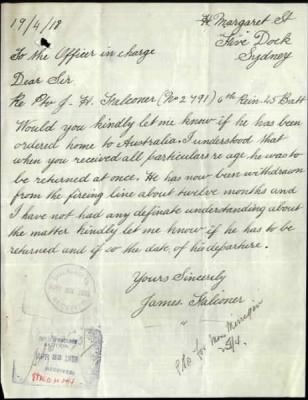 19/4/18
Margaret St
Five Dock
Sydney
To the Officer in charge
Dear Sir
Re Pte J. H. Falconer (No 2791) 6th Rein. 45 Batt
Would you kindly let me know if he has been
ordered home to Australia. I understood that
when you received all particulars re age he was to
be returned at once. He has now been withdrawn
from the fireing line about twelve months and
I have not had any definate understanding about
the matter kindly let me know if he has to be
returned and if so the date of his departure.
Yours Sincerely
James Falconer
for
APR 22 1918